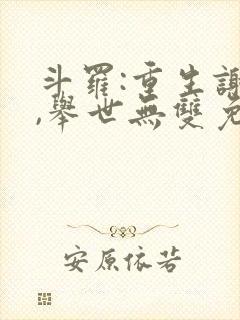 斗羅:重生謝
,舉世無雙兔
安原依若